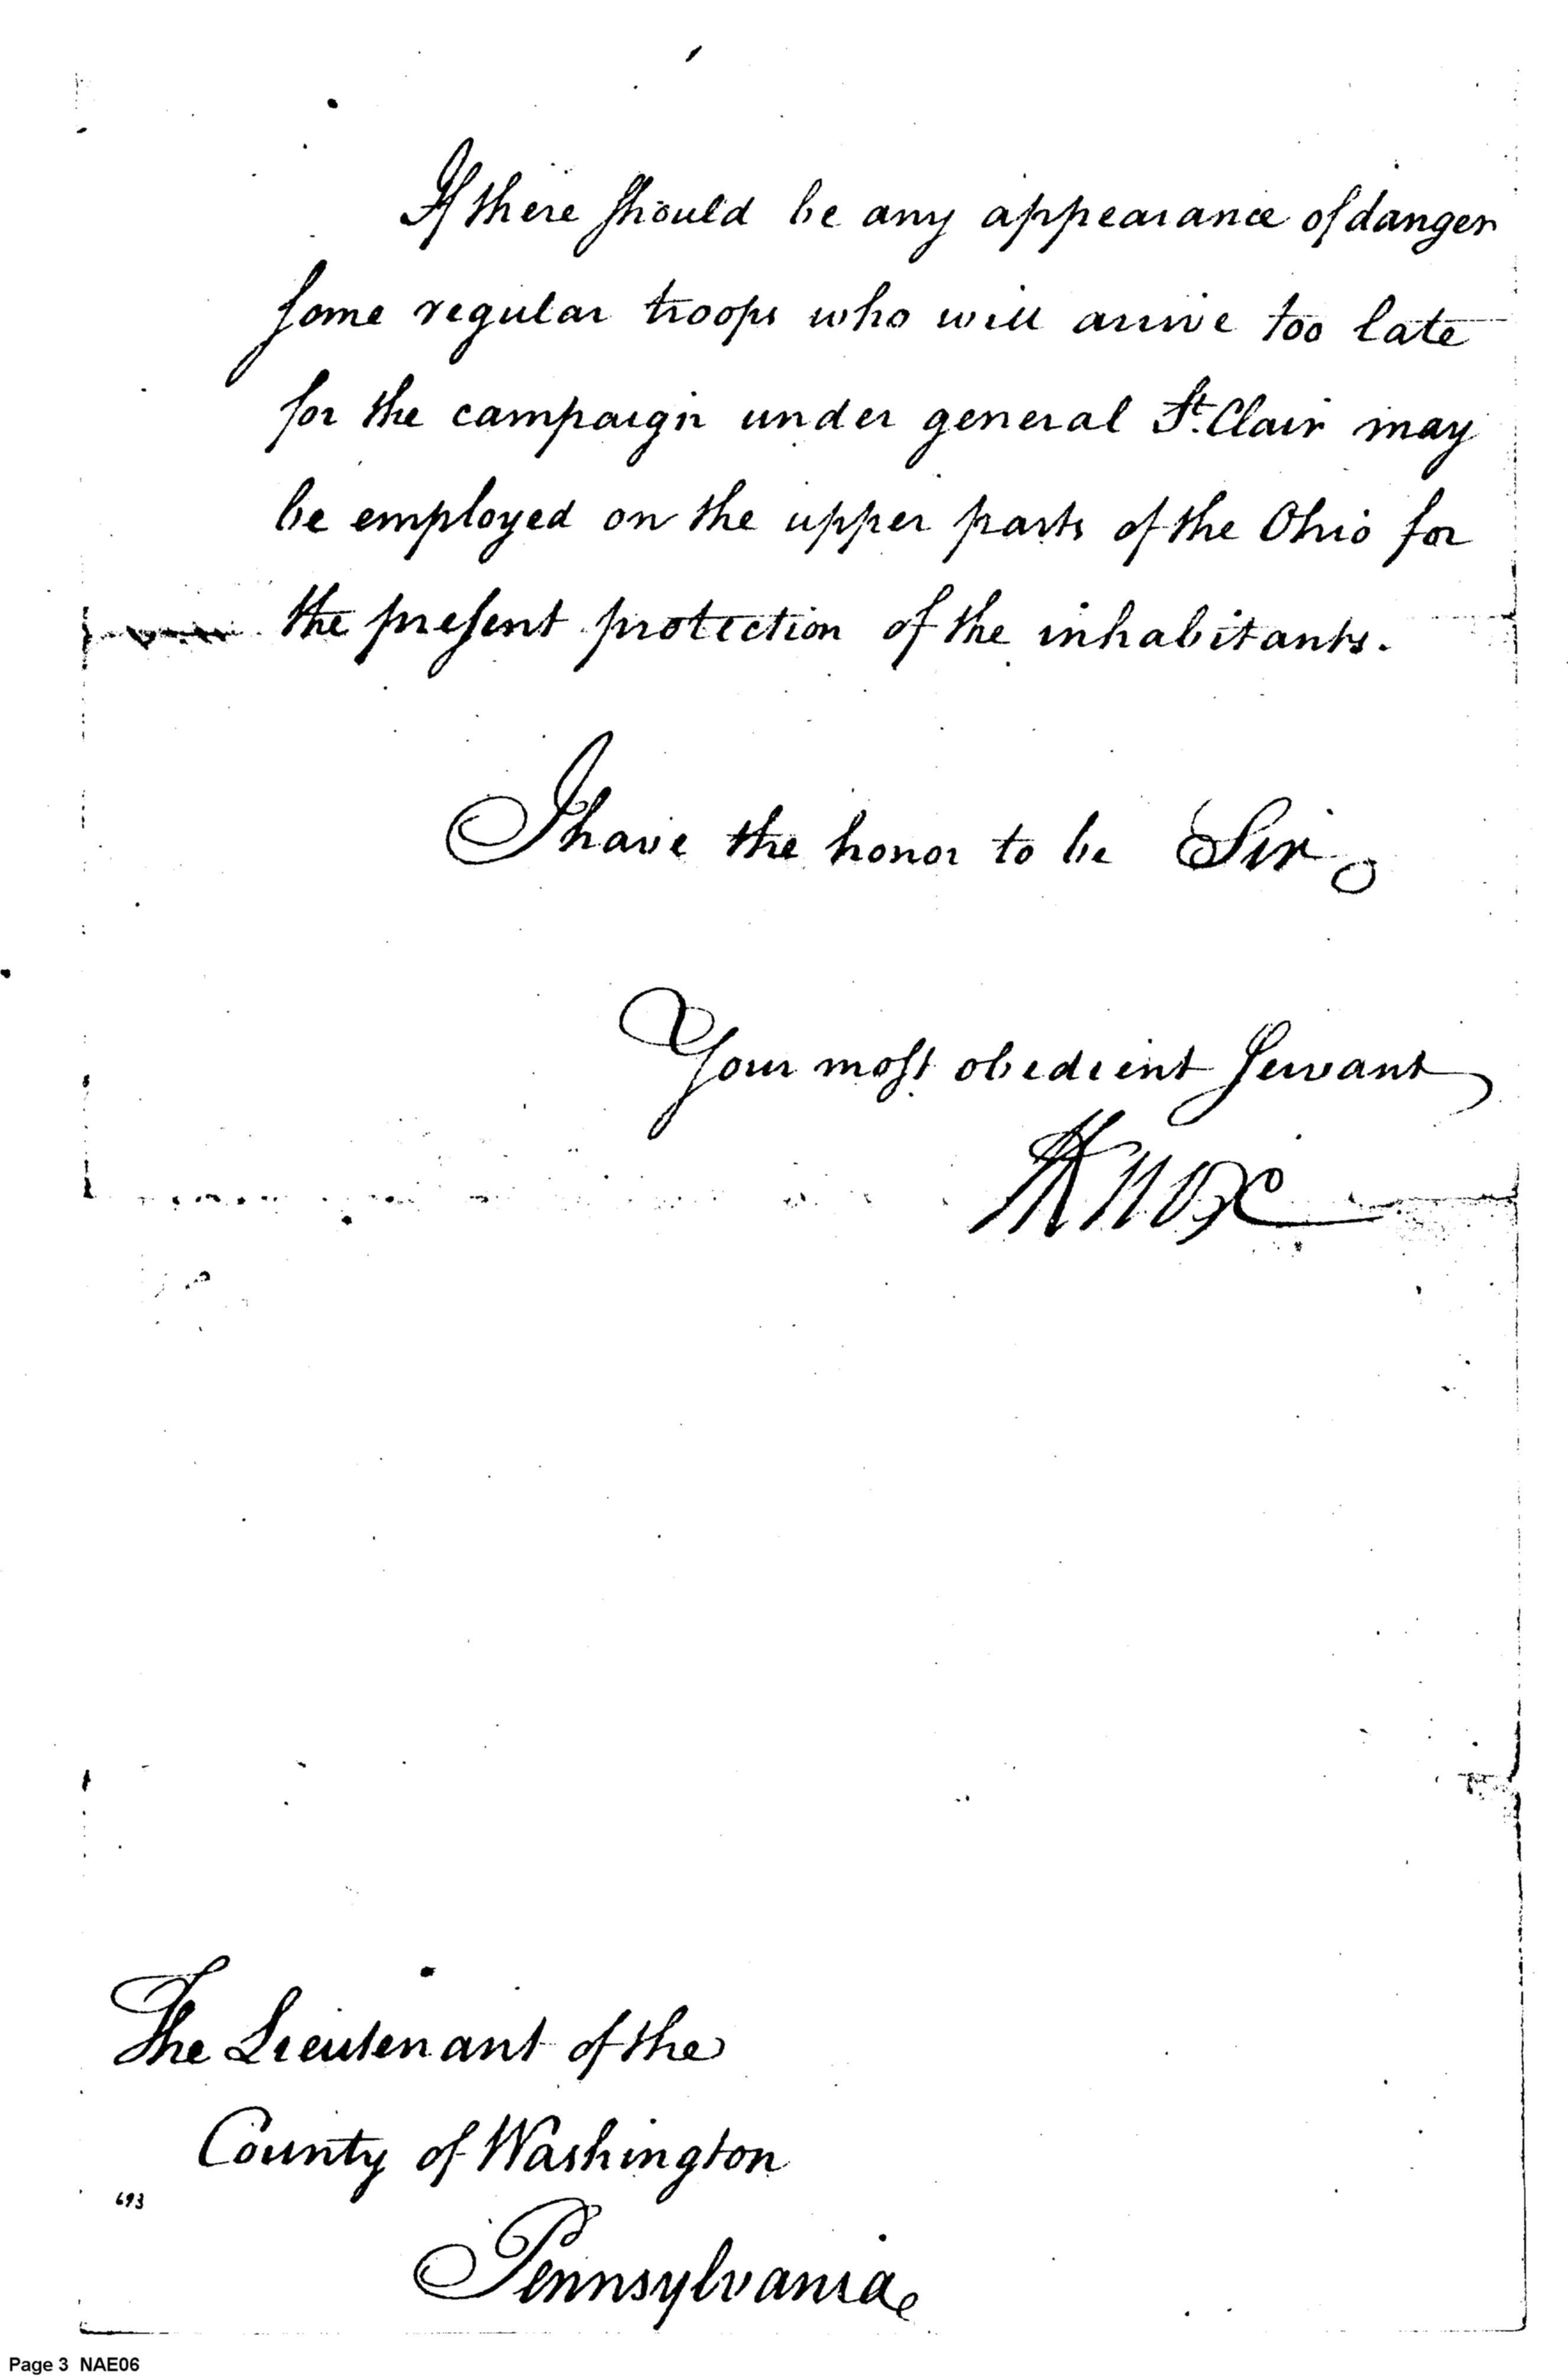 If there should be any appearance of danger
some regular troops who will arrive too late
for the campaign under general St. Clair may
be employed on the upper parts of the Ohio for
the present protection of the inhabitants.
I have the honor to be Sir
Your most obedient Servant
HKnox
The Lieutenant of the
County of Washington
693
Pennsylvania
Page 3 NAE06